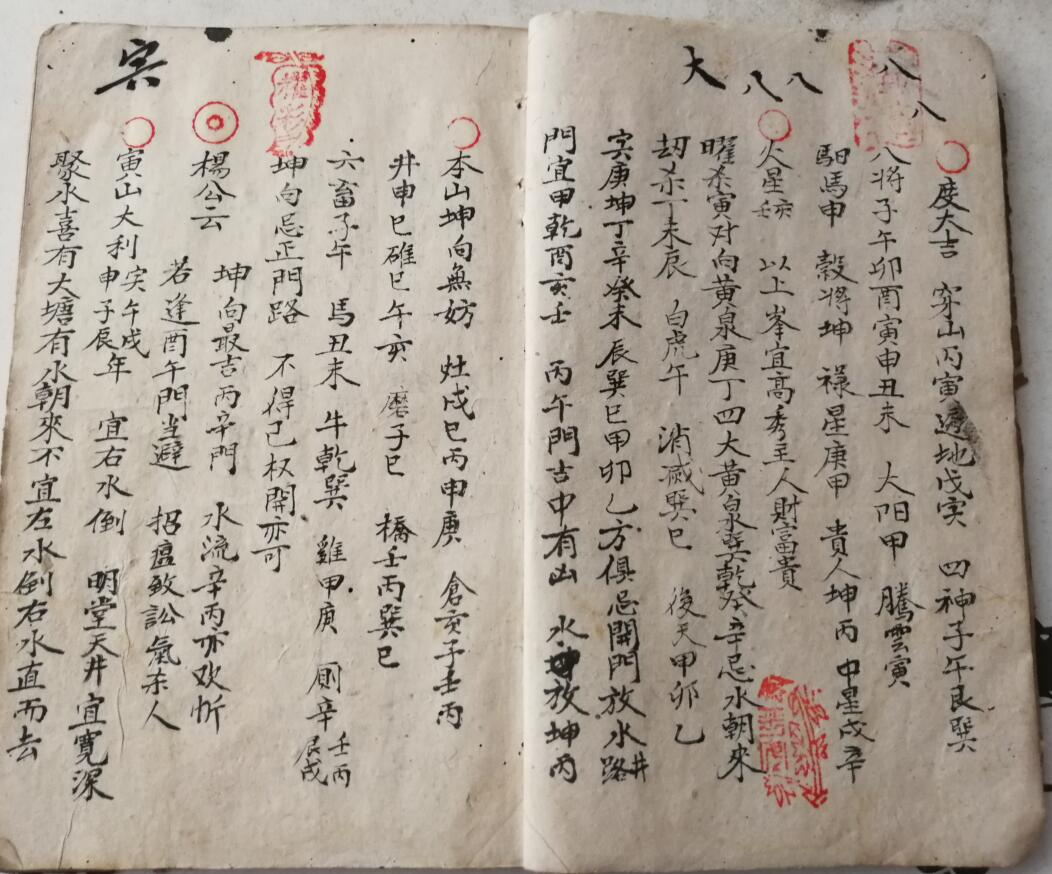 大 八 八 八 八
度大吉 穿山丙寅透地戊寅 四神子午艮巽
八将子午卯酉寅申丑未 太阳甲 騰雲寅
馹馬申 穀将坤 禄星庚甲 貴人坤丙 中星戌辛
火星亥壬 以上峯宜高秀主人財富貴
曜杀寅对向黃泉庚丁四大黃泉巽乾癸辛忌水朝來
刼杀丁未辰 白虎午 消滅巽巳 後天甲卯乙
寅庚坤丁辛癸未辰巽巳甲卯乙方俱忌開門放水路井
門宜甲乾酉亥壬 丙午門吉中有凶 水放坤丙
寅
本山坤向無妨 灶戌巳丙申庚 倉亥子壬丙
井申巳碓巳午亥 磨子巳 橋壬丙巽巳
六畜子午 馬丑未 牛乾巽 雞甲庚 厠辛壬丙艮戌
坤向忌正門路 不得已权開亦可
楊公云 坤向最吉丙辛門 水流辛丙亦欢忻
若逢酉午門当避 招瘟致訟氣杀人
寅山大利寅午戌申子辰年 宜右水倒 明堂天井宜寬深
聚水喜有大塘有水朝來不宜左水倒右水直而去